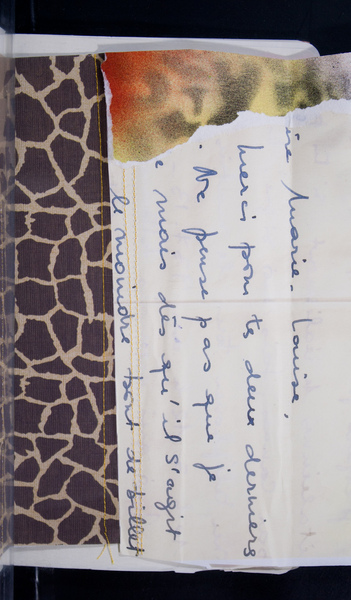 ère Marie-Louise,
Merci pour tes deux derniers
. Ne pense pas que je
e mais dès qu'il s'agit
le moindre bout de billet